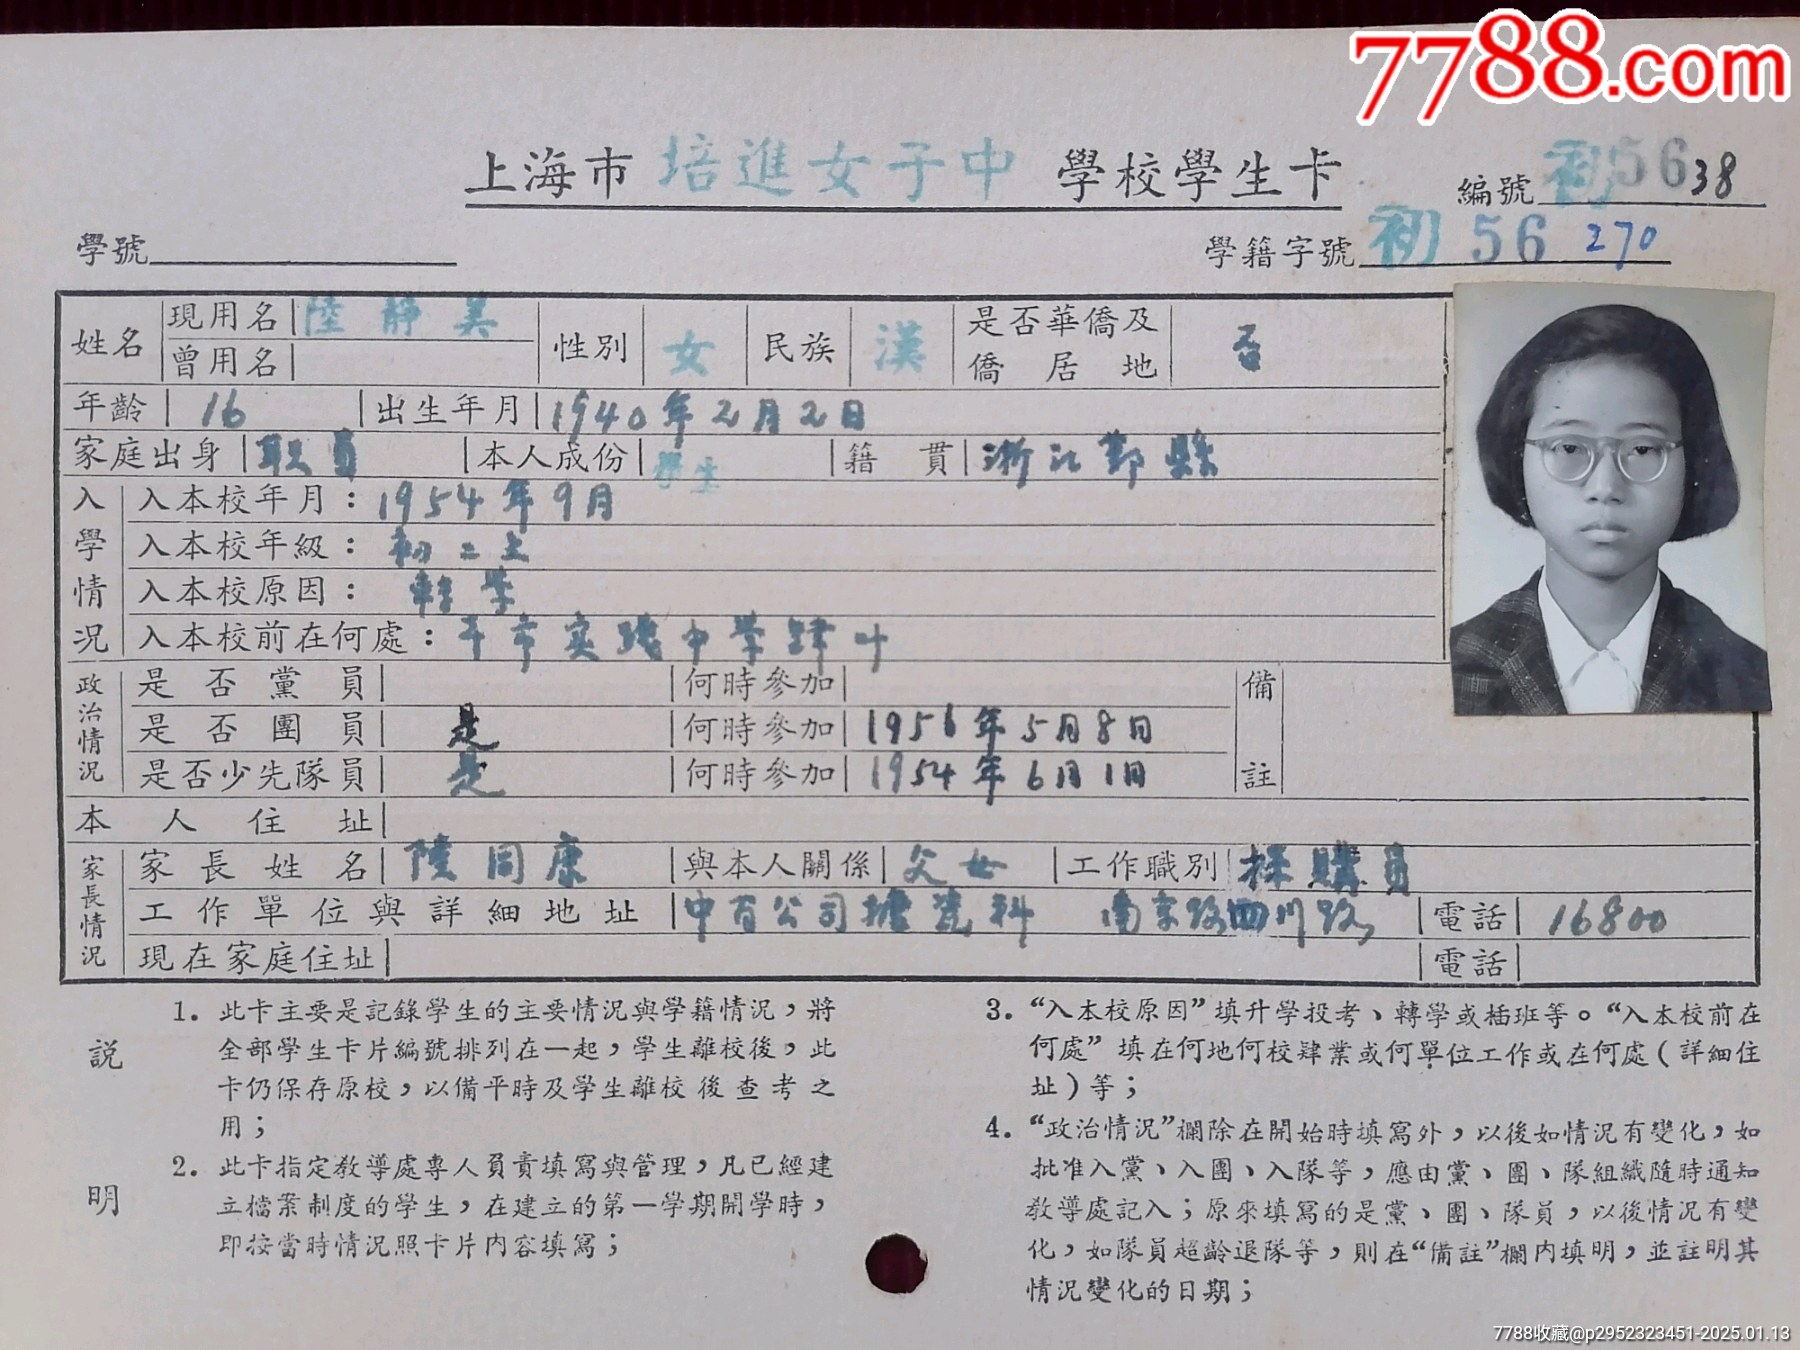 7788.com
上海市 培進女子中 學校學生卡
編號 初5638
學號
學籍字號 初 56 270
姓名 現用名 陸靜美 性別 女 民族 漢 是否華僑及僑居地 否
曾用名
年齡 16 出生年月 1940年2月2日
家庭出身 职員 本人成份 學生 籍貫 浙江鄞縣
入學情況 入本校年月：1954年9月
入本校年級：初二上
入本校原因：轉学
入本校前在何處：市实踐中学肄
政治情況 是否黨員 何時參加 備註
是否團員 是 何時參加 1956年5月8日
是否少先隊員 是 何時參加 1954年6月1日
本人住址
家長情況 家長姓名 陸同康 與本人關係 父女 工作職別 採購員
工作單位與詳細地址 中百公司搪瓷科 南京路四川路 電話 16800
現在家庭住址 電話
說明
1. 此卡主要是記錄學生的主要情況與學籍情況，將
全部學生卡片編號排列在一起，學生離校後，此
卡仍保存原校，以備平時及學生離校後查考之
用；
2. 此卡指定教導處專人負責填寫與管理，凡已經建
立檔案制度的學生，在建立的第一學期開學時，
即按當時情況照卡片內容填寫；
3. “入本校原因”填升學投考、轉學或插班等。“入本校前在
何處”填在何地何校肄業或何單位工作或在何處（詳細住
址）等；
4. “政治情況”欄除在開始時填寫外，以後如情況有變化，如
批准入黨、入團、入隊等，應由黨、團、隊組織隨時通知
教導處記入；原來填寫的是黨、團、隊員，以後情況有變
化，如隊員超齡退隊等，則在“備註”欄內填明，並註明其
情況變化的日期；
7788收藏@p2952323451-2025.01.13